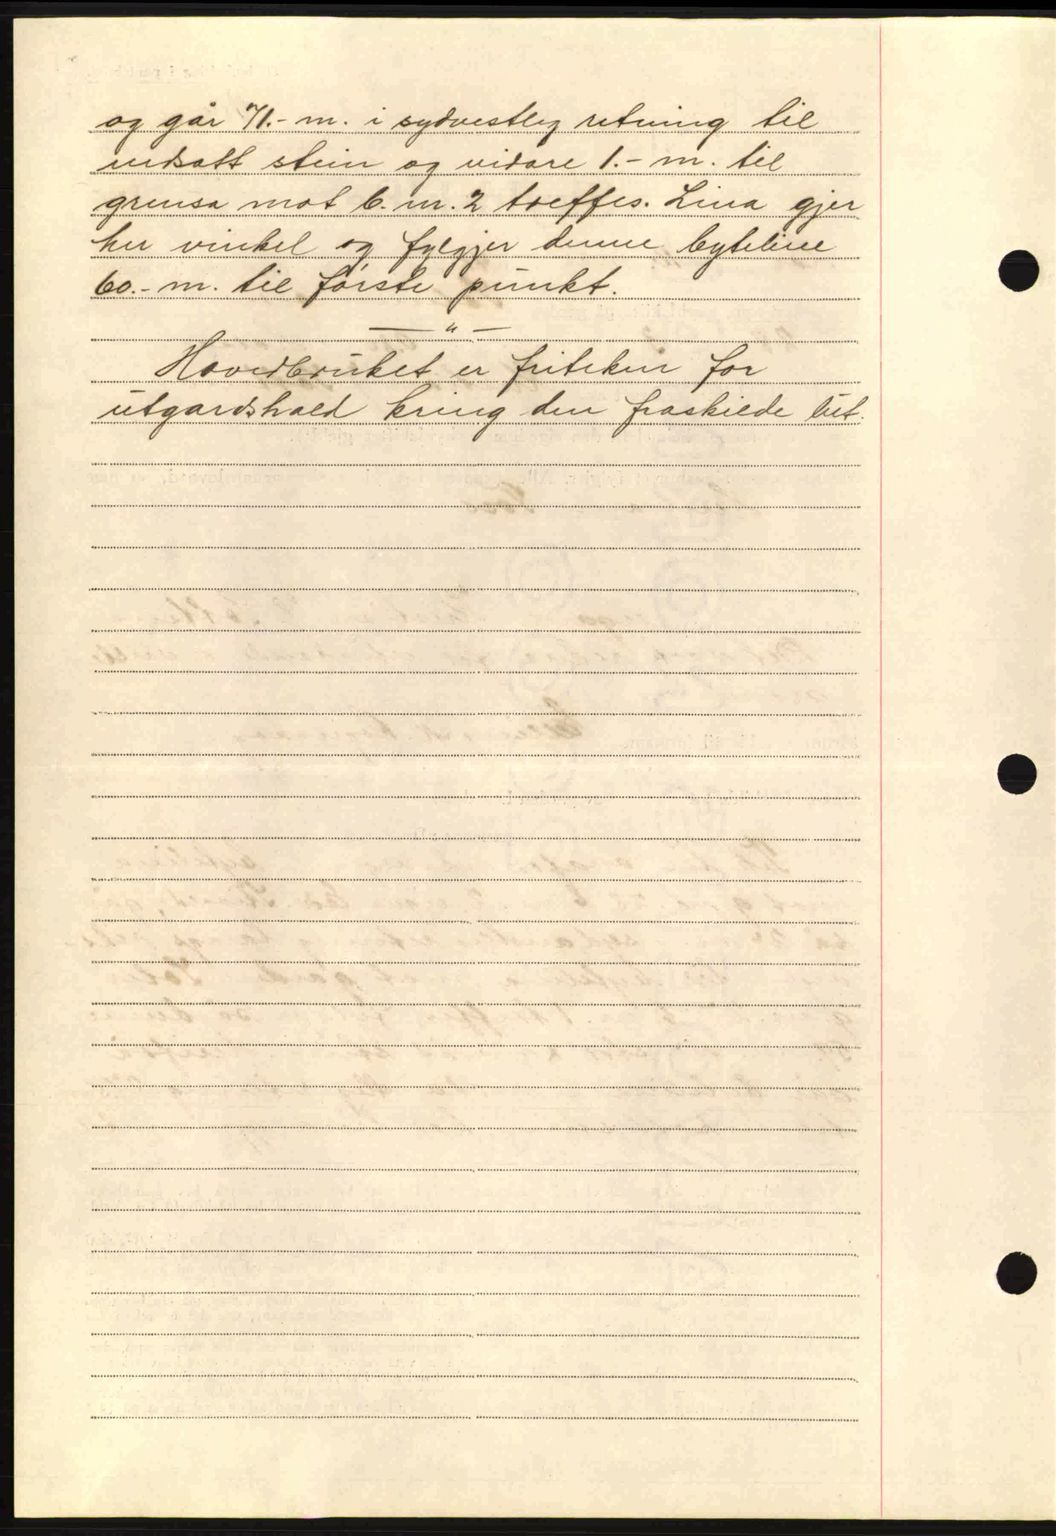 og går 71.- m. i sydvestleg retning til
nedsatt stein og vidare 1.- m. til
grensa mot b. nr. 2 treffes. Lina gjer
her vinkel og fylgjer denne byteline
60.- m. til første punkt.
— " —
Hovedbruket er friteken for
utgardshald kring den fraskilde lut.